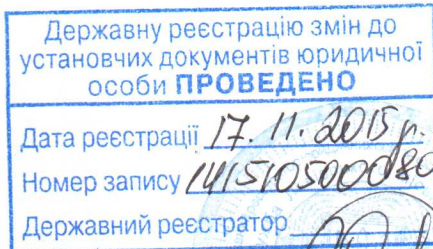 Державну реєстрацію змін до
установчих документів юридичної
особи ПРОВЕДЕНО
Дата реєстрації 17. 11. 2015 р.
Номер запису
Державний реєстратор